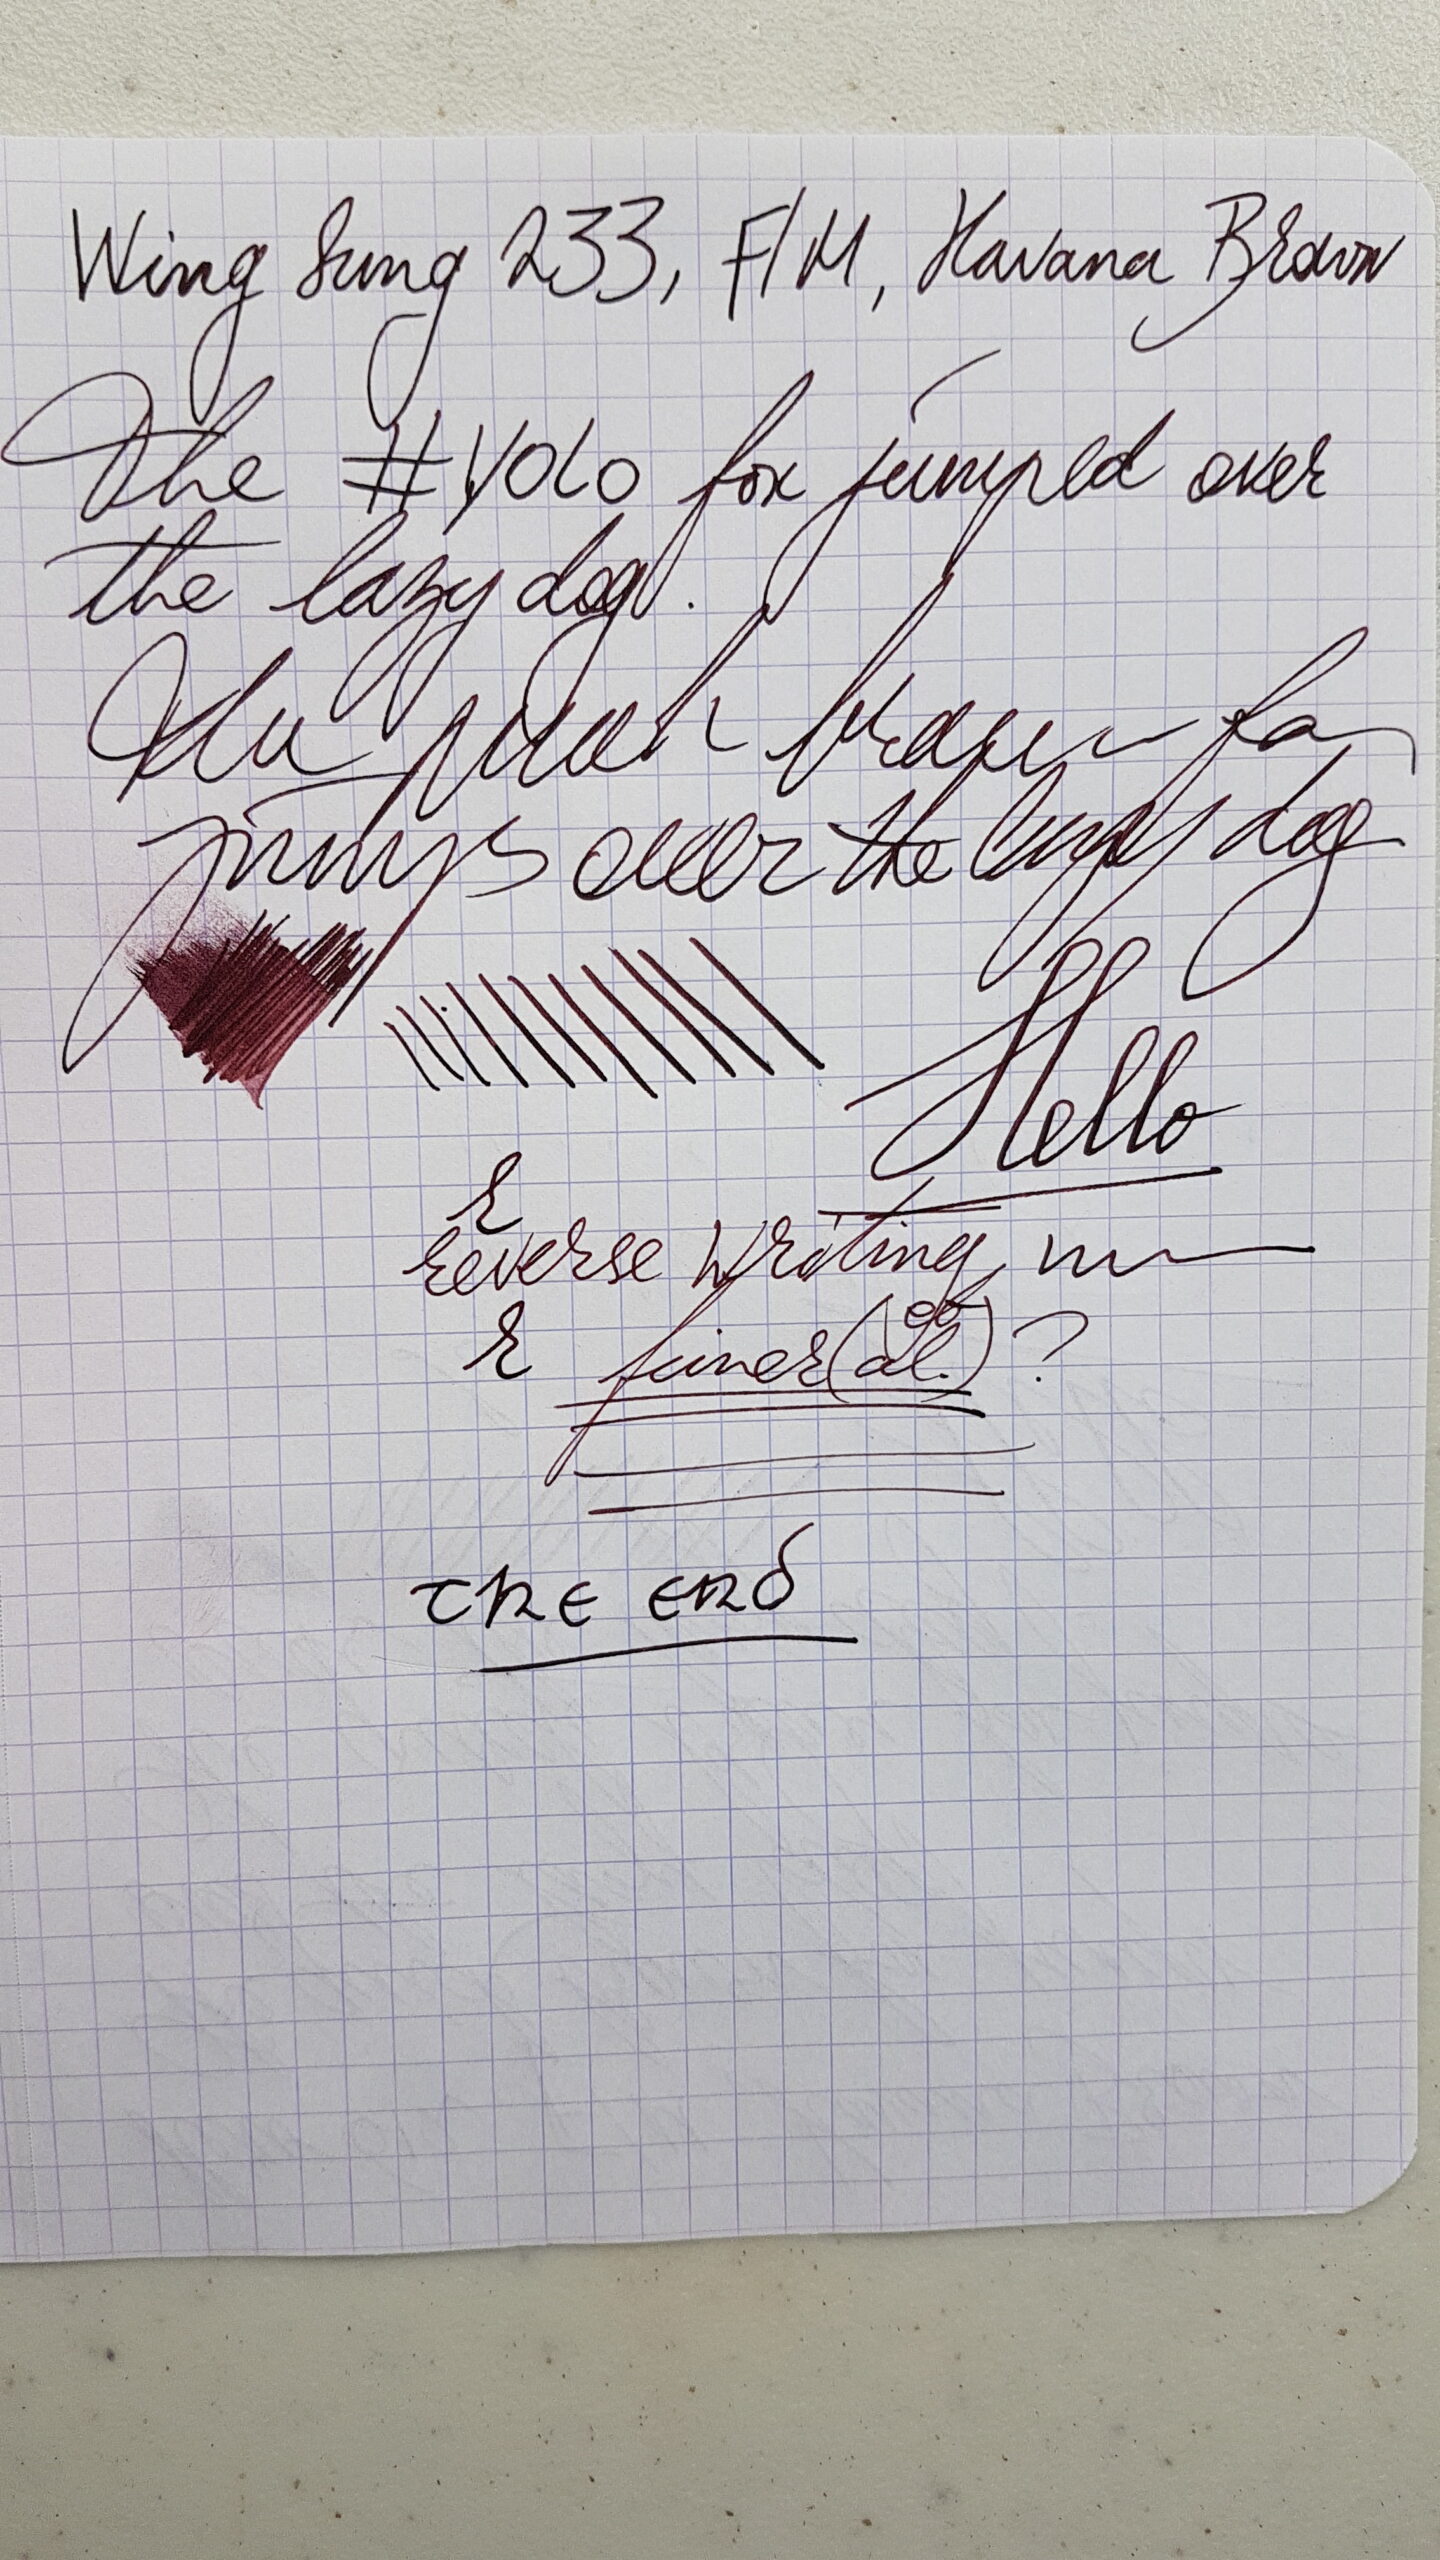 Wing Sung 233, F/M, Havana Brown
The #YOLO fox jumped over
the lazy dog.
The quick brown fox
jumps over the lazy dog
Hello
r
reverse writing
r finer(al.)?
THE END